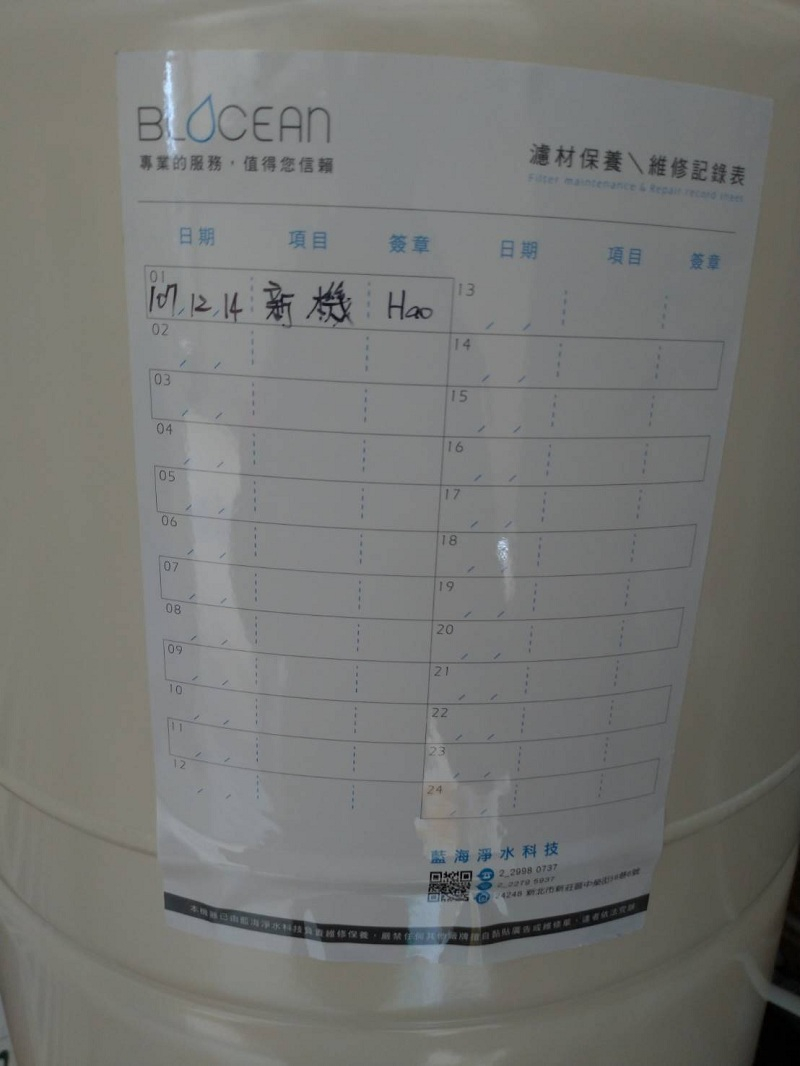 BLOCEAN
專業的服務，值得您信賴
濾材保養＼維修記錄表
Filter maintenance & Repair record sheet
日期 項目 簽章 日期 項目 簽章
01 107.12.14 新機 Hao
02
03
04
05
06
07
08
09
10
11
12
13
14
15
16
17
18
19
20
21
22
23
24
藍海淨水科技
2_2998 0737
新北市新莊區中榮街
本機器已由藍海淨水科技負責維修保養，嚴禁任何其他廠牌擅自黏貼廣告或維修單，違者依法究辦